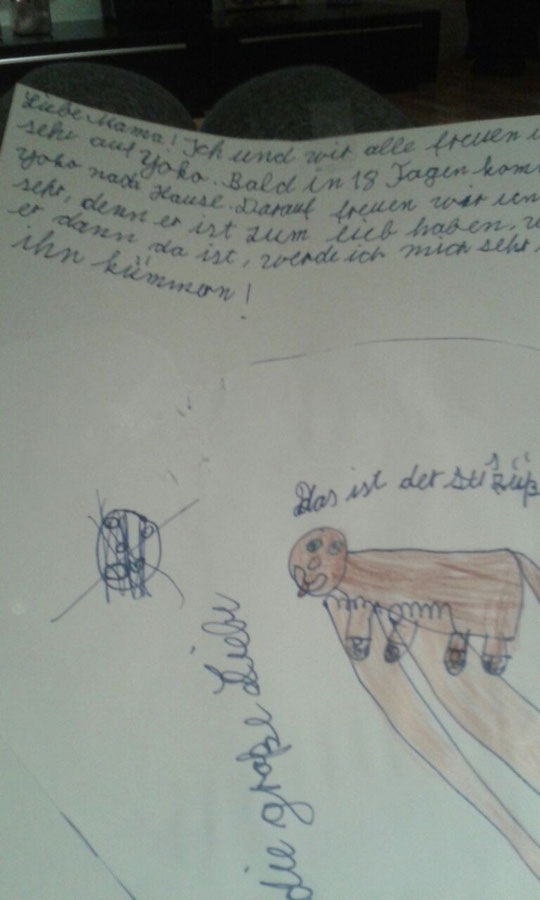 Liebe Mama! Ich und wir alle freuen
sehr auf Yoko. Bald in 18 Tagen kom
Yoko nach Hause. Darauf freuen wir un
sehr, denn er ist zum lieb haben. W
er dann da ist, werde ich mich sehr
ihn kümmern!
Das ist der
die große Liebe